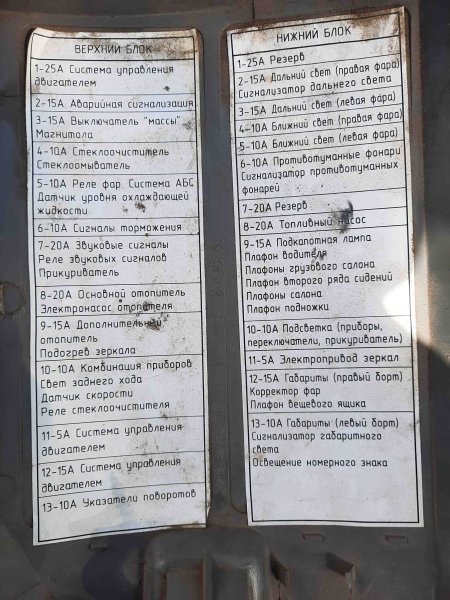 ВЕРХНИЙ БЛОК
1-25А Система управления
двигателем
2-15А Аварийная сигнализация
3-15А Выключатель "массы"
Магнитола
4-10А Стеклоочиститель
Стеклоомыватель
5-10А Реле фар. Система АБС
Датчик уровня охлаждающей
жидкости
6-10А Сигналы торможения
7-20А Звуковые сигналы
Реле звуковых сигналов
Прикуриватель
8-20А Основной отопитель
Электронасос отопителя
9-15А Дополнительный
отопитель
Подогрев зеркала
10-10А Комбинация приборов
Свет заднего хода
Датчик скорости
Реле стеклоочистителя
11-5А Система управления
двигателем
12-15А Система управления
двигателем
13-10А Указатели поворотов
НИЖНИЙ БЛОК
1-25А Резерв
2-15А Дальний свет (правая фара)
Сигнализатор дальнего света
3-15А Дальний свет (левая фара)
4-10А Ближний свет (правая фара)
5-10А Ближний свет (левая фара)
6-10А Противотуманные фонари
Сигнализатор противотуманных
фонарей
7-20А Резерв
8-20А Топливный насос
9-15А Подкапотная лампа
Плафон водителя
Плафоны грузового салона
Плафон второго ряда сидений
Плафоны салона
Плафон подножки
10-10А Подсветка (приборы,
переключатели, прикуриватель)
11-5А Электропривод зеркал
12-15А Габариты (правый борт)
Корректор фар
Плафон вещевого ящика
13-10А Габариты (левый борт)
Сигнализатор габаритного
света
Освещение номерного знака